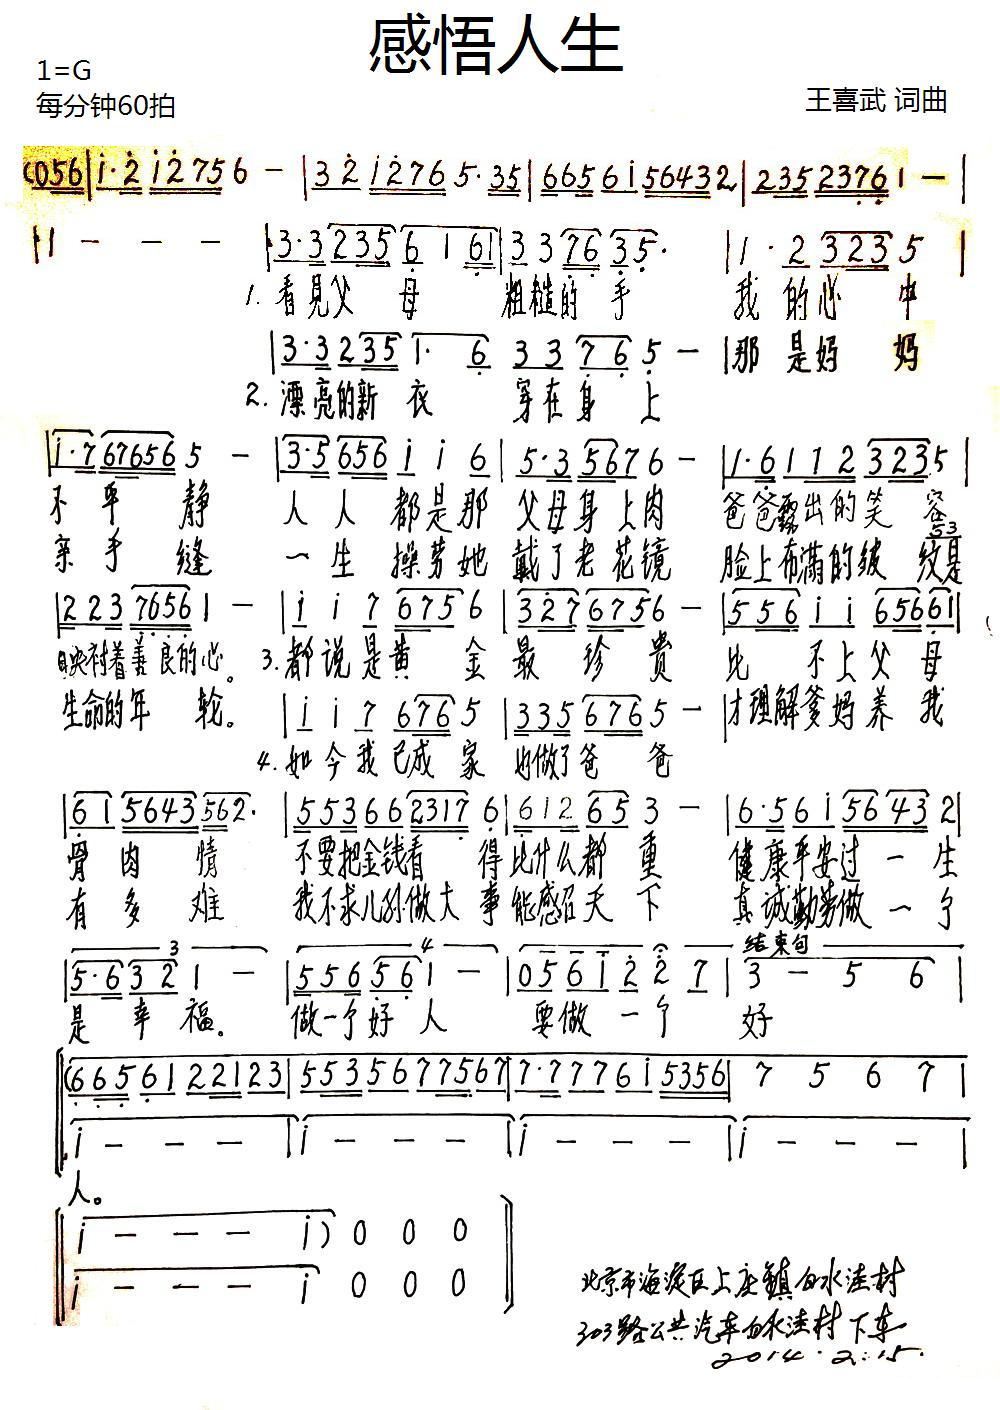 感悟人生
1=G
每分钟60拍
王喜武 词曲
(056 | 1·2 12756 - | 32 1276 5·35 | 6656156432 | 2352376 1 - |
1 - - - | 3·3235 6 1 61 | 33 76 35· | 1·2 323 5 |
1. 看見父 母 粗糙的 手 我 的心 中
| 3·3235 1· 6 33 76 5 - | 那 是妈 妈
2. 漂亮的新 衣 穿在身 上
| 1·767656 5 - | 3·5656 1 1 6 | 5·35676 - | 1·6112 3235 |
不 平 静 人 人 都是那 父母身上肉 爸爸露出的笑 容
53
亲 手 缝 一 生 操劳她 戴了老花镜 脸上布满的皱 纹是
| 2237656 1 - | 1 1 7 675 6 | 327 6756 - | 556 1 1 65661 |
映衬着善良的心。 3. 都说是黄 金 最 珍 贵 比 不上父 母
生命的年 轮。 | 1 1 7 676 5 | 335 6765 - | 才理解爹妈养 我
4. 如今我已成 家 也做了爸 爸
| 61 5643562· | 55366 2317 6 | 612 65 3 - | 6·561 5643 2 |
骨 肉 情 不要把金钱看 得 比什么都 重 健康平安过 一 生
有 多 难 我不求儿孙做大 事 能感召天 下 真诚勤劳做 一 个
3 4 结束句
| 5·6 32 1 - | 556 56 1 - | 0561 2 2 7 | 3 - 5 6 |
是 幸 福。 做一个好 人 要做 一 个 好
(665612212 3 | 5535677567 | 7·777615356 | 7 5 6 7 |
1 - - - | 1 - - - | 1 - - - | 1 - - - |
人。
1 - - 1) 0 0 0
1 - - 1 0 0 0
北京市海淀区上庄镇白水洼村
303路公共汽车白水洼村下车
2014.2.15.